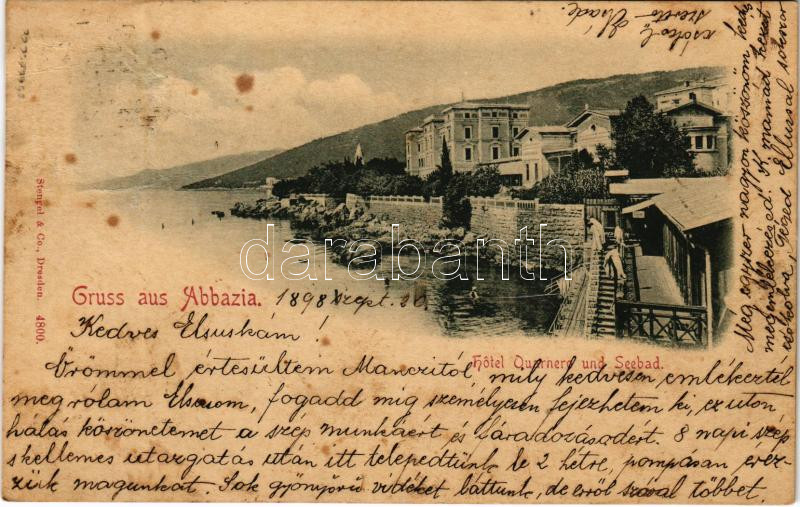 Gruss aus Abbazia. 1898 Szept. 20
Hôtel Quarnero und Seebad.
Stengel & Co., Dresden. 4800.
Kedves Elsuskám!
Örömmel értesültem Manczitól mily kedvesen emlékeztél
meg rólam Elsusom, fogadd míg személyesen fejezhetem ki, ez uton,
hálás köszönetemet a szép munkáért és fáradozásodért. 8 napi szép
s kellemes utazgatás után itt telepedtünk le 2 hétre, pompásan érez-
zük magunkat. Sok gyönyörű vidéket láttunk, de erről szóval többet.
Még egyszer nagyon köszönöm
megemlékezésed. K. mamád kezeit
csókolva, Gézád Elussal sokszor
csókol
szerető
darabanth